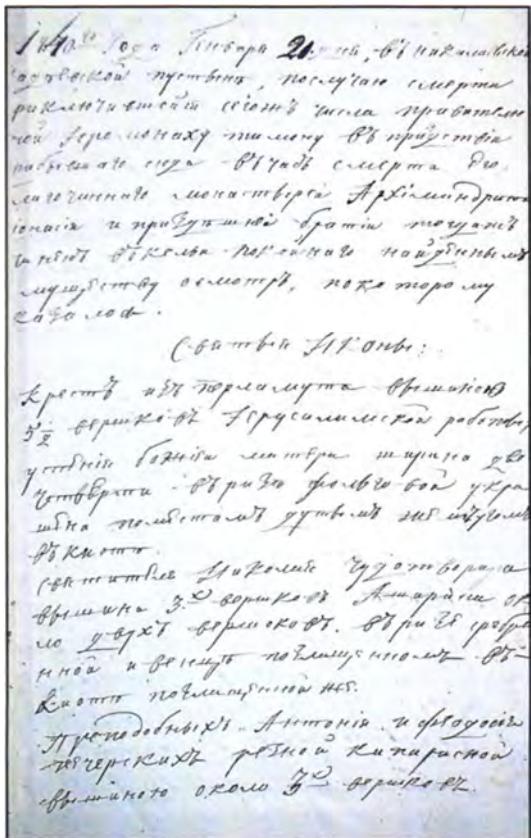 1840го Года Генваря 20 дня, въ николаевской
пустыне, послучаю смерти
приключившейся сегожъ числа
Іеромонаху тимону въ присутствіи
прибывшаго сюда въ часъ смерти его
лагочиннаго монастырей Архимандрита
и братіи
въ кельи покойнаго найденнымъ
муществу осмотръ, покоторому
казалось.
Святыя Иконы:
Крестъ изъ перламута вышиною
5 1/2 вершковъ Іерусалимской работы
божіей матери ширина
четверти въ ризе фольговой укра
шена поместамъ дутымъ жемчугомъ
въ киоте.
святителя Николая Чудотворца
вышина 3х вершковъ Аширина ок
ло двухъ вершковъ. въ ризе сребре
нной и венцѣ позлащенномъ въ
киоте позлащенной же.
Преподобныхъ Антонія и Феодосія
печерскихъ резной кипарисной
вышиною около 3х вершковъ.